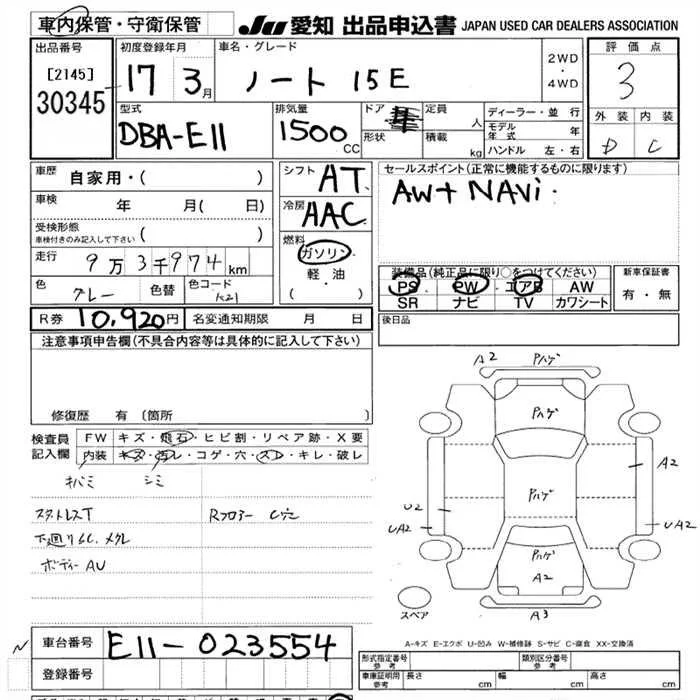 車内保管・守衛保管
JU 愛知 出品申込書 JAPAN USED CAR DEALERS ASSOCIATION
出品番号
[2145]
30345
初度登録年月
17 3月
車名・グレード
ノート 15E
2WD
・
4WD
評価点
3
外装 内装
D C
型式
DBA-E11
排気量
1500 CC
ドア
形状
定員 人
積載 kg
ディーラー・並行
モデル年式 年
ハンドル 左・右
車歴 自家用・( )
車検 年 月( 日)
受検形態
車検付きのみ記入して下さい ( )
走行 9万3千974km
色 グレー 色替 色コード
シフト AT
冷房 AAC
燃料
ガソリン
軽油
(・ )
セールスポイント(正常に機能するものに限ります)
AW+ NAVi.
装備品(純正品に限り○をつけてください)
PS PW エアB AW
SR ナビ TV カワシート
新車保証書
有・無
R券 10,920円 名変通知期限 月 日
後日品
注意事項申告欄(不具合内容等は具体的に記入して下さい)
修復歴 有(箇所
検査員
記入欄
FW キズ・飛石・ヒビ割・リペア跡・X要
内装 キズ・汚レ・コゲ・穴・スレ・キレ・破レ
キバミ シミ
スタトレスT Rフロアー
ボディーAU
A2 Pハゲ
Pハゲ
A2
Pハゲ
U2
UA2
UA2
Pハゲ
A2
スペア
A3
A-キズ E-エクボ U-凹み W-補修跡 S-サビ C-腐食 XX-交換済
車台番号 E11-023554
登録番号
形式指定番号
参考
類別区分番号
参考
車庫証明用
参考
長さ cm 幅 cm 高さ cm